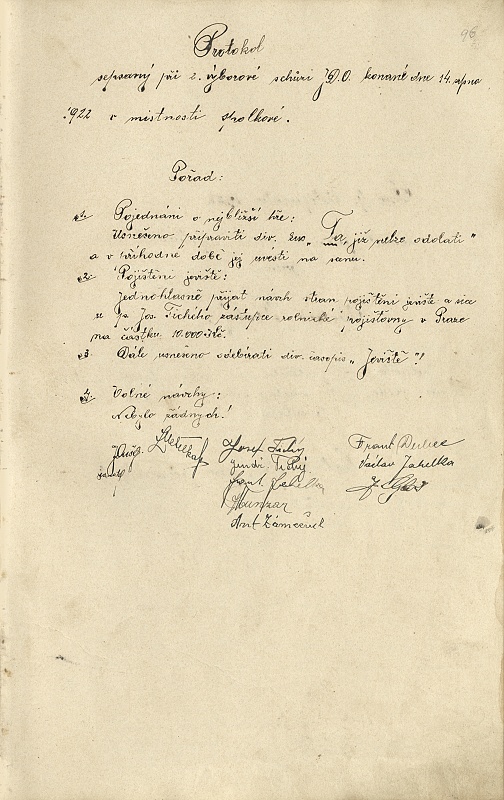 96
Protokol
sepsaný při 2. výborové schůzi J.D.O. konané dne 14. srpna
1922 v místnosti spolkové.
Pořad:
1. Pojednání o nejbližší hře:
Usnešeno připraviti div. kus „Ta, již nelze odolati"
a v příhodné době jej uvésti na scénu.
2. Pojištění jeviště:
Jednohlasně přijat návrh stran pojištění jeviště a sice
u p. Jos. Tichého zástupce rolnické pojišťovny v Praze
na částku 10.000 Kč.
3. Dále usneseno odebírati div. časopis „Jeviště"!
4. Volné návrhy:
Nebylo žádných!
Josef Tichý
Frant Dubec
Jindř. Tichý
Václav Jakelka
Frant Jakelka
Hunzar
Ant Zámečník